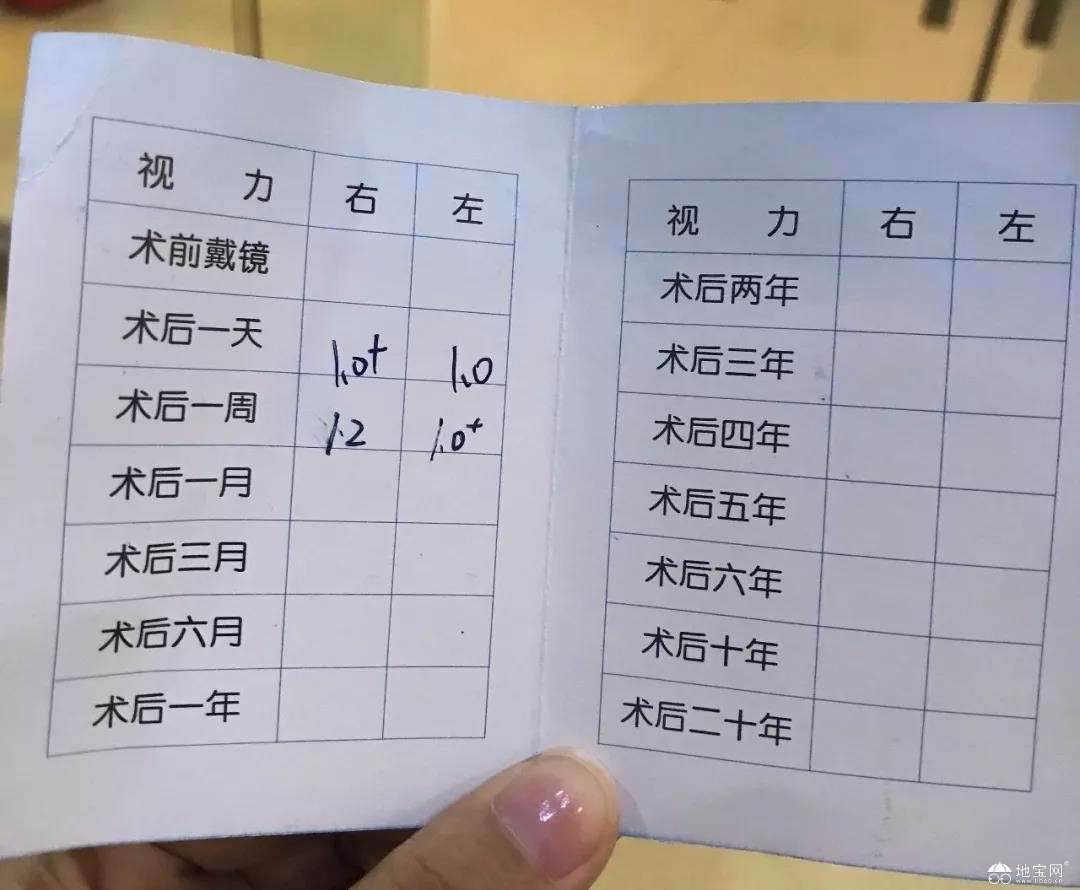 视 力 右 左
术前戴镜
术后一天 1.0+ 1.0
术后一周 1.2 1.0+
术后一月
术后三月
术后六月
术后一年
视 力 右 左
术后两年
术后三年
术后四年
术后五年
术后六年
术后十年
术后二十年
地宝网